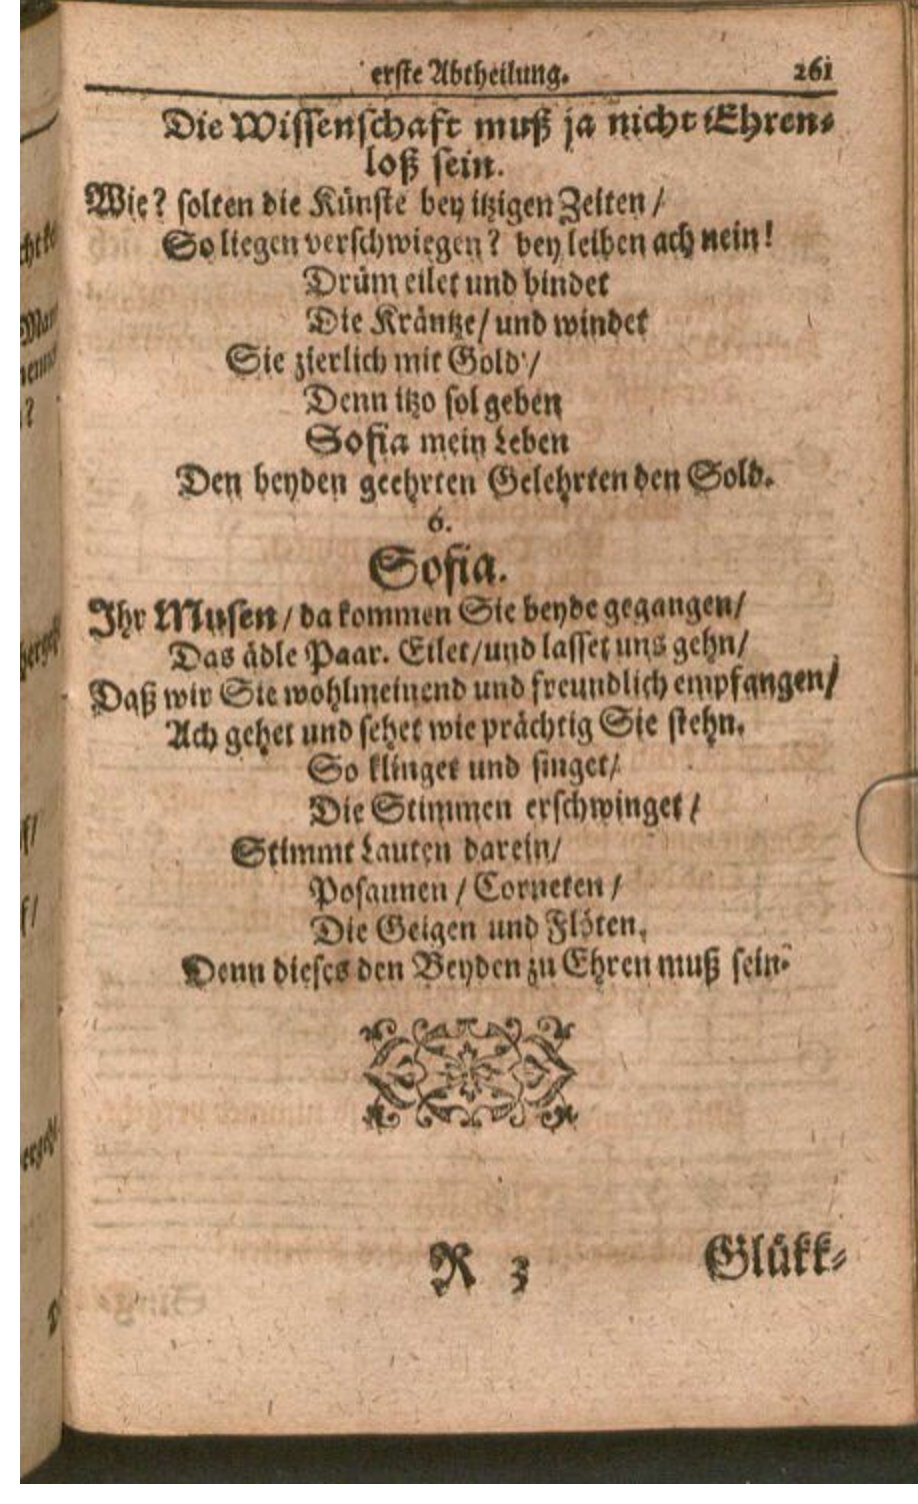 erste Abtheilung. 261
Die Wissenschaft muß ja nicht Ehren-
loß sein.
Wie? solten die Künste bey itzigen Zeiten /
So liegen verschwiegen? bey leiben ach nein!
Drüm eilet und bindet
Die Kräntze / und windet
Sie zierlich mit Gold /
Denn itzo sol geben
Sofia mein Leben
Den beyden geehrten Gelehrten den Sold.
6.
Sofia.
Ihr Musen / da kommen Sie beyde gegangen /
Das ädle Paar. Eilet / und lasset uns gehn /
Daß wir Sie wohlmeinend und freundlich empfangen /
Ach gehet und sehet wie prächtig Sie stehn.
So klinget und singet /
Die Stimmen erschwinget /
Stimmt Lauten darein /
Posaunen / Corneten /
Die Geigen und Flöten.
Denn dieses den Beyden zu Ehren muß sein.
R 3 Glükk-